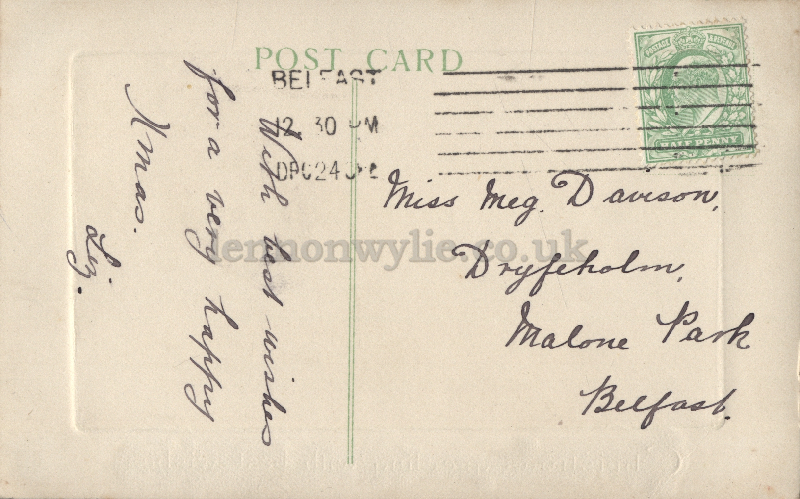 POST CARD
BELFAST
12 30 PM
DEC 24
POSTAGE REVENUE
HALFPENNY
With best wishes
for a very happy
Xmas.
Liz.
Miss Meg. Davison,
Dryfeholm,
Malone Park
Belfast.
lennonwylie.co.uk